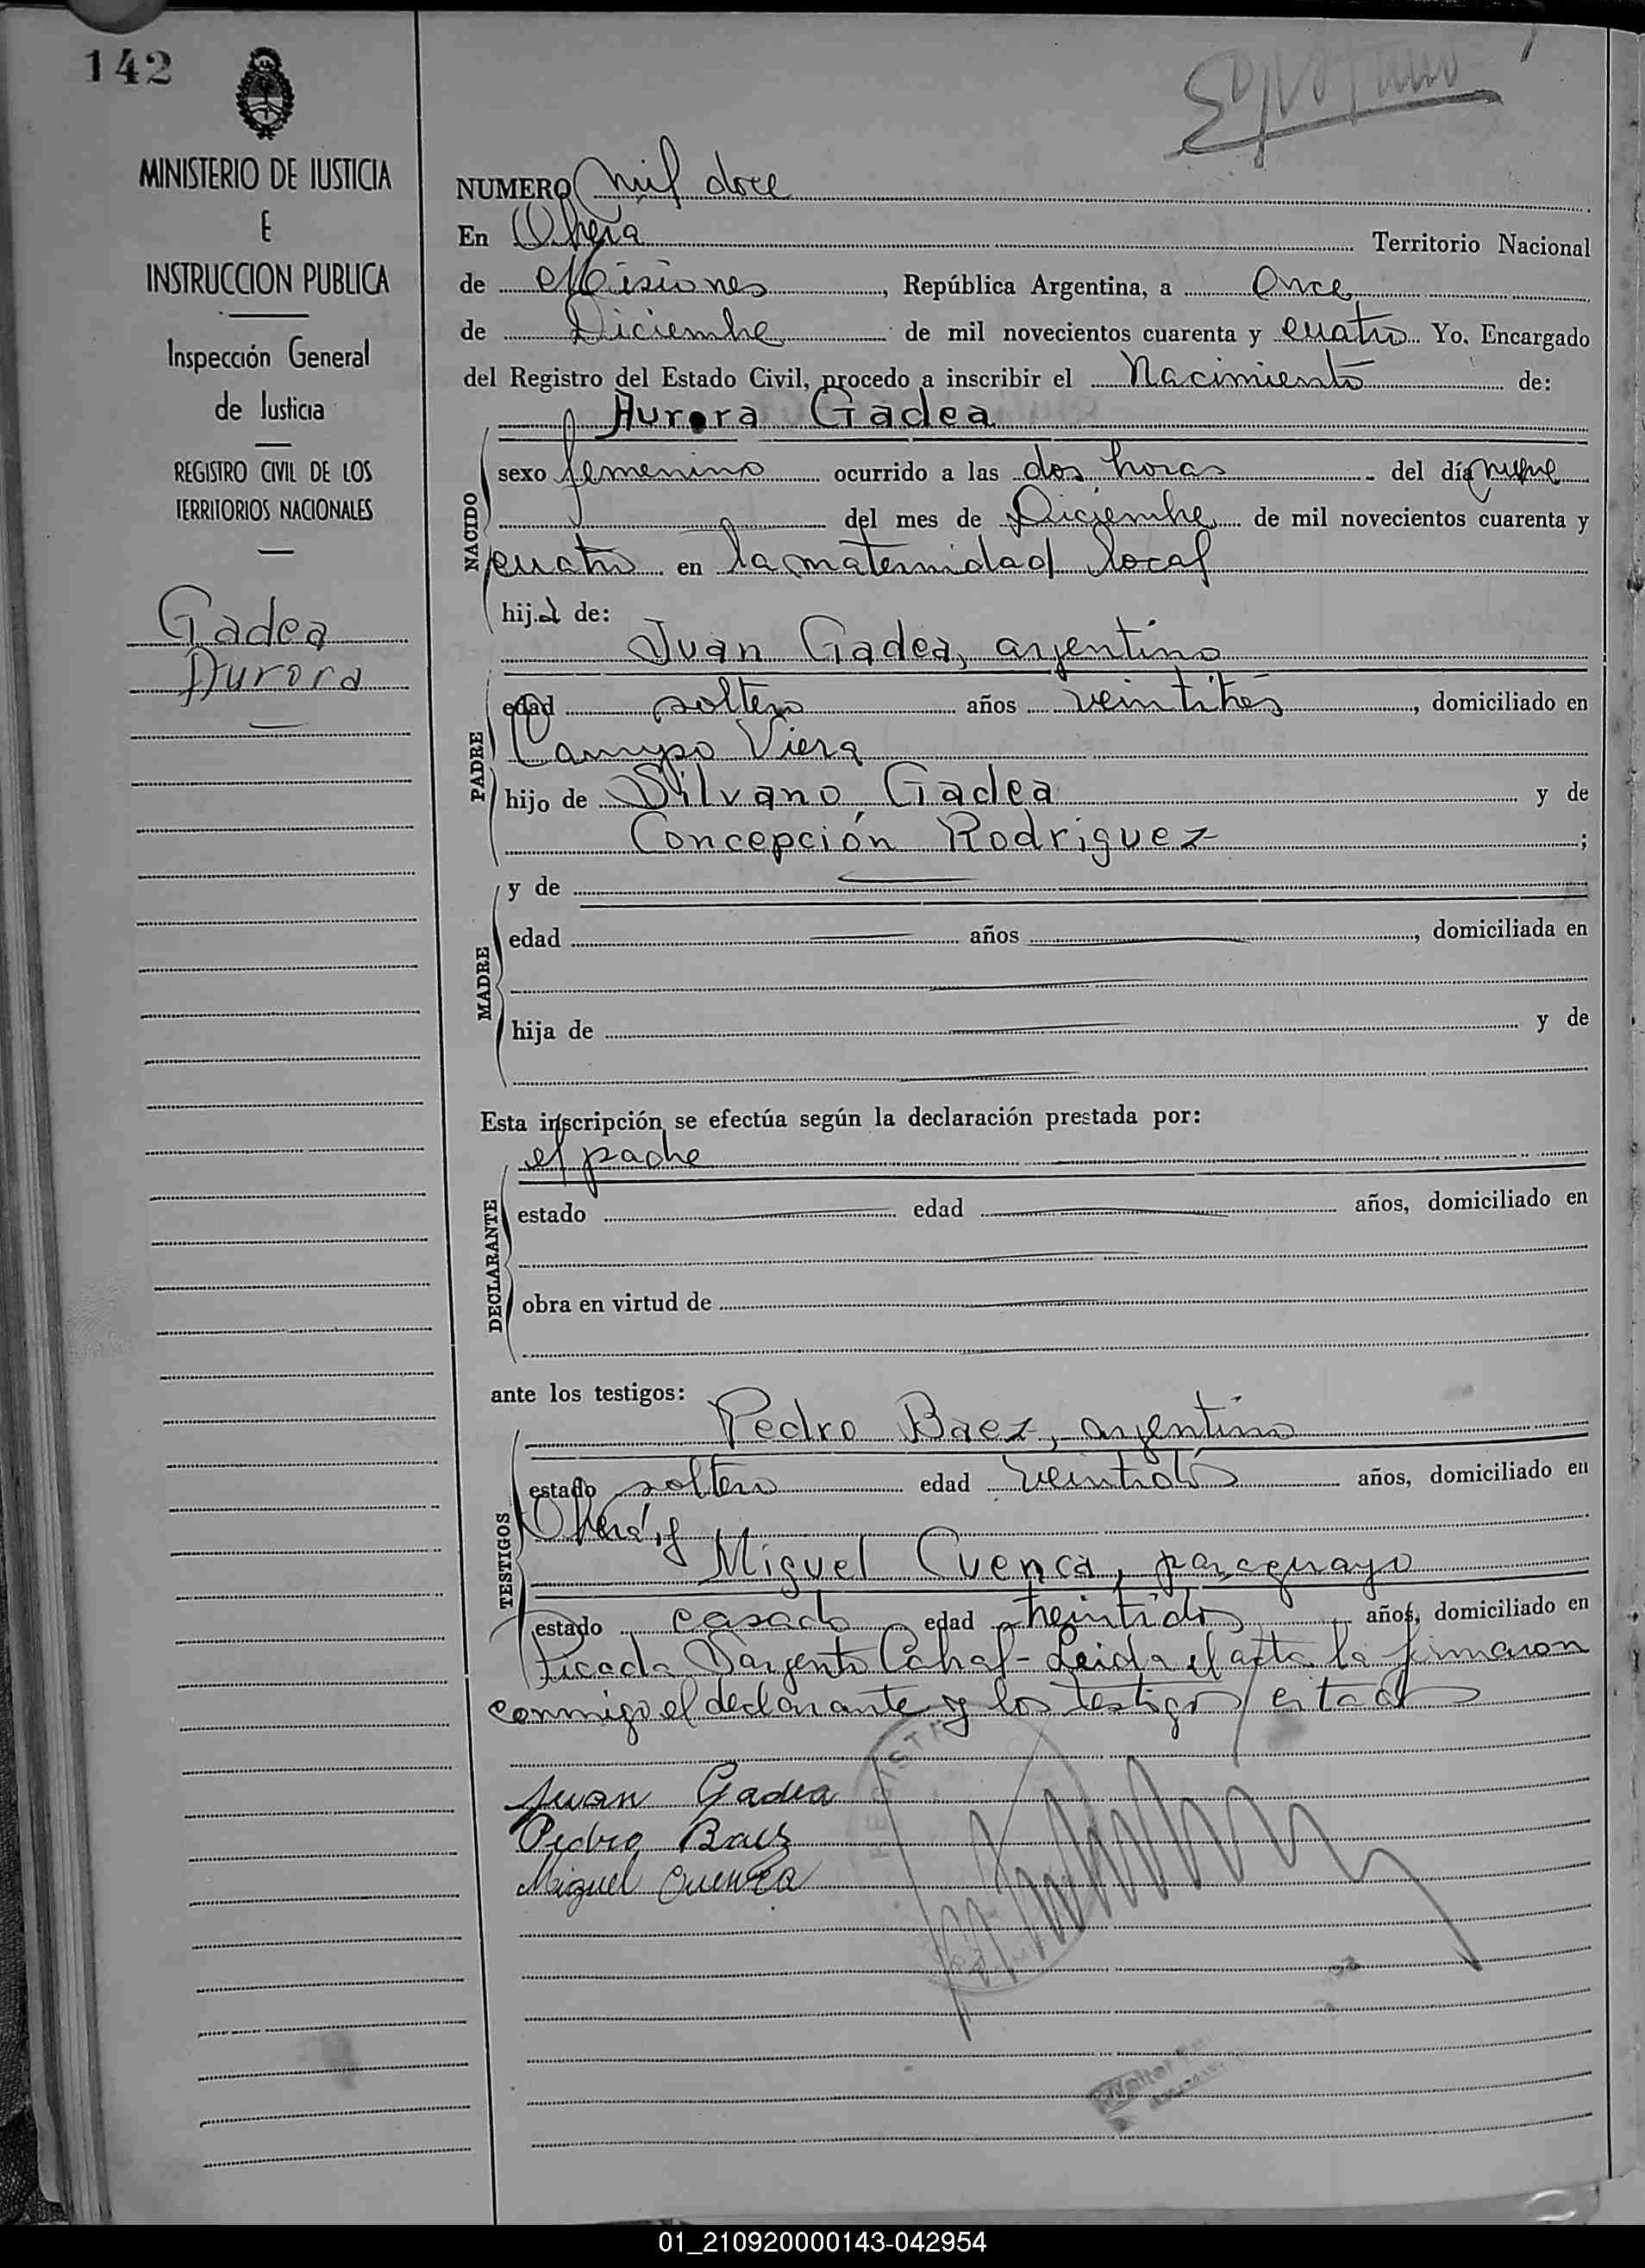 142
MINISTERIO DE JUSTICIA
E
INSTRUCCION PUBLICA
Inspección General
de Justicia
REGISTRO CIVIL DE LOS
TERRITORIOS NACIONALES
Gadea
Aurora
NUMERO mil doce
En Oberá Territorio Nacional
de Misiones, República Argentina, a Once
de Diciembre de mil novecientos cuarenta y cuatro Yo. Encargado
del Registro del Estado Civil, procedo a inscribir el Nacimiento de:
Aurora Gadea
NACIDO
sexo femenino ocurrido a las dos horas del día nueve
del mes de Diciembre de mil novecientos cuarenta y
cuatro en la maternidad local
hija de:
Juan Gadea, argentino
PADRE
edad soltero años veintitrés, domiciliado en
Campo Viera
hijo de Silvano Gadea y de
Concepción Rodriguez ;
MADRE
y de
edad años , domiciliada en
hija de y de
Esta inscripción se efectúa según la declaración prestada por:
el padre
DECLARANTE
estado edad años, domiciliado en
obra en virtud de
ante los testigos:
Pedro Baez, argentino
TESTIGOS
estado soltero edad veintidós años, domiciliado en
Oberá, y
Miguel Cuenca, paraguayo
estado casado edad treintidós años, domiciliado en
Picada Sargento Cabral - Leida el acta la firmaron
conmigo el declarante y los testigos citados
Juan Gadea
Pedro Baez
Miguel Cuenca
01_210920000143-042954